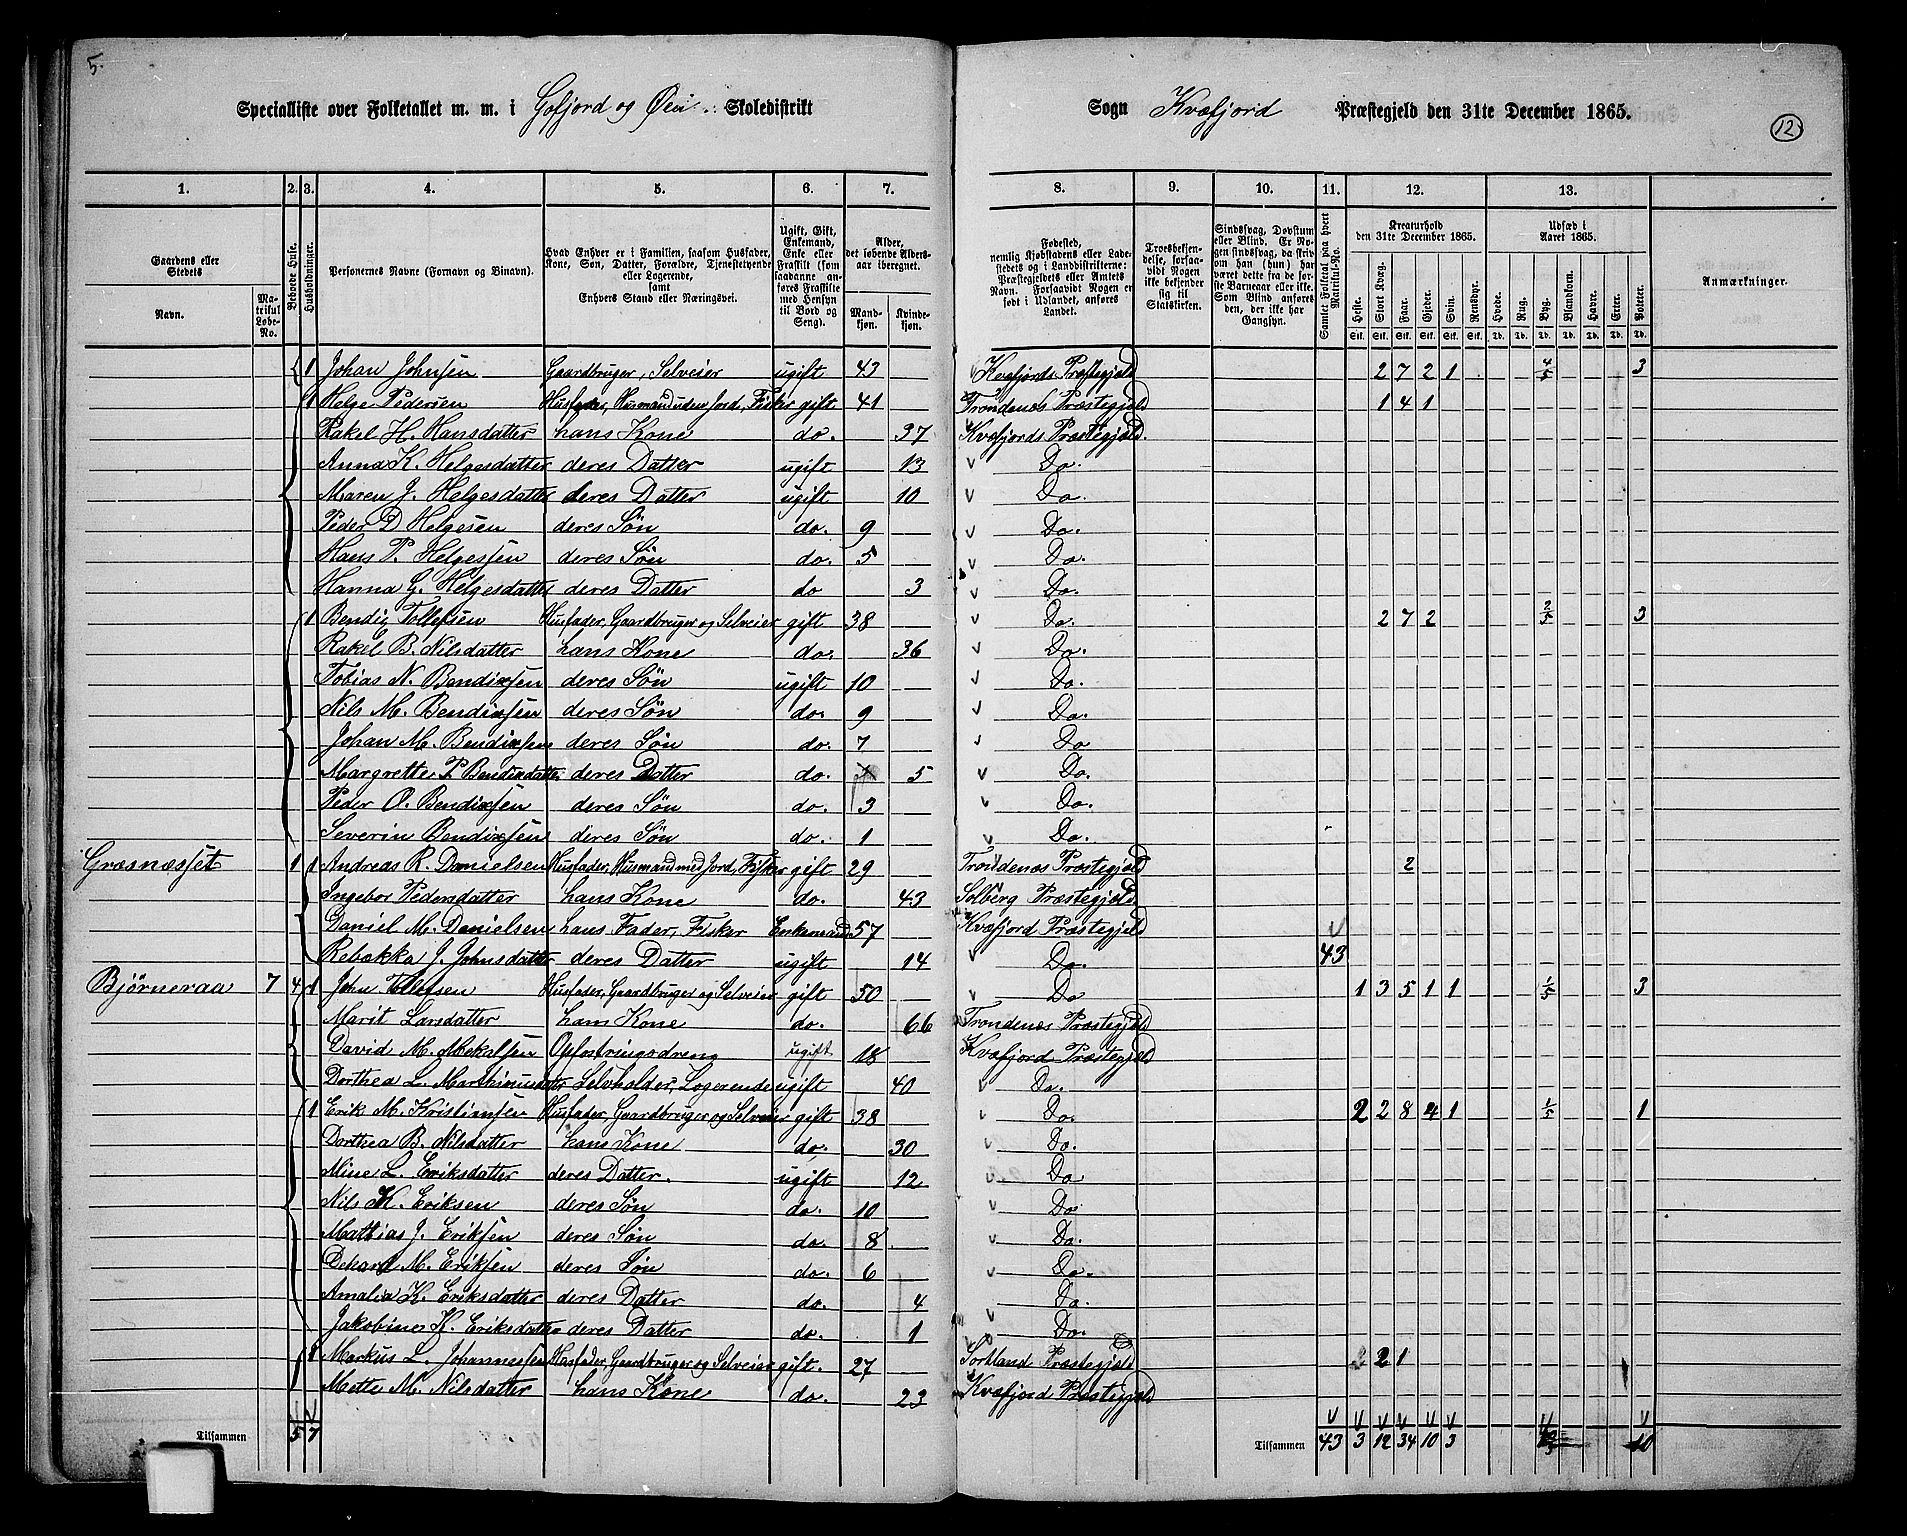 5.
Specialliste over Folketallet m. m. i Gofjord og Øen Skoledistrikt
Sogn Kvæfjord Præstegjeld den 31te December 1865.
12
1. 2. 3. 4. 5. 6. 7. 8. 9. 10. 11. 12. 13.
Gaardens eller Stedets
Navn.
Matrikul Løbe-No.
Beboede Huse.
Husholdninger.
Personernes Navne (Fornavn og Binavn).
Hvad Enhver er i Familien, saasom Husfader, Kone, Søn, Datter, Forældre, Tjenestetyende eller Logerende, samt Enhvers Stand eller Næringsvei.
Ugift, Gift, Enkemand, Enke eller Fraskilt (som saadanne anføres Fraskilte med Hensyn til Bord og Seng).
Alder, det løbende Aldersaar iberegnet.
Mandkjøn. Kvindekjøn.
Fødested, nemlig Kjøbstadens eller Ladestedets og i Landdistrikterne: Præstegjeldets eller Amtets Navn. Forsaavidt Nogen er født i Udlandet, anføres Landet.
Troesbekjendelse, forsaavidt Nogen ikke bekjender sig til Statskirken.
Sindssvag, Døvstum eller Blind. Er Nogen sindssvag, da skrives om han (hun) har været dette fra de første Barneaar eller ikke. Som Blind anføres den, der ikke har Gangsyn.
Samlet Folketal paa hvert Matrikul-No.
Kreaturhold den 31te December 1865.
Heste. Stort Kvæg. Faar. Gjeder. Svin. Rensdyr.
Stk. Stk. Stk. Stk. Stk. Stk.
Udsæd i Aaret 1865.
Hvede. Rug. Byg. Blandkorn. Havre. Erter. Poteter.
Td. Td. Td. Td. Td. Td. Td.
Anmærkninger.
1 Johan Johnsen Gaardbruger, Selveier ugift 43 Kvæfjords Præstegjeld 2 7 2 1 4/5 3
1 Helge Pedersen Husfader, Husmand uden Jord, Fisker gift 41 Trondenæs Præstegjeld 1 4 1
Rakel H. Hansdatter hans Kone do. 37 Kvæfjords Præstegjeld.
Anna K. Helgesdatter deres Datter ugift 13 Do.
Maren J. Helgesdatter deres Datter ugift 10 Do.
Peder D Helgesen deres Søn do. 9 Do.
Hans P. Helgessen deres Søn do. 5 Do.
Hanna G. Helgesdatter deres Datter do 3 Do.
1 Bendix Tollefsen Husfader, Gaardbruger og Selveier gift 38 Do. 2 7 2 2/5 3
Rakel B. Nilsdatter hans Kone do. 36 Do.
Tobias N. Bendixsen deres Søn ugift 10 Do.
Nils M. Bendixsen deres Søn do. 9 Do.
Johan M. Bendixsen deres Søn do. 7 Do
Margrette P Bendixdatter deres Datter do. 5 Do.
Peder O. Bendixsen deres Søn do. 3 Do.
Severin Bendixsen deres Søn do. 1 Do.
Græsnæsset 1 1 Andreas R. Danielsen Husfader, Husmand med Jord, Fisker gift 29 Trondenæs Præstegjeld 2
Ingebor Pedersdatter hans Kone do. 43 Solberg Præstegjeld
Daniel M. Danielsen hans Fader, Fisker Enkemand 57 Kvæfjord Præstegjeld
Rebækka J. Johnsdatter deres Datter ugift 14 Do. 43
Bjørneraa 7 4 1 John Tollefsen Husfader, Gaardbruger og Selveier gift 50 Do 1 3 5 1 1 1/5 3
Marit Larsdatter hans Kone do. 66 Trondenæs Præstegjeld
David M. Mekalsen Opfostringsdreng ugift 18 Kvæfjord Præstegjeld
Dorthea L. Marthinusdatter Selvholder, Logerende ugift 40 Do.
1 Erik M. Kristiansen Husfader, Gaardbruger og Selveier gift 38 Do. 2 2 8 4 1 1/5 1
Dorthea B. Nilsdatter hans Kone do. 30 Do.
Mine L. Eriksdatter deres Datter. ugift 12 Do
Nils K. Eriksen deres Søn do. 10 Do
Mathias J. Eriksen deres Søn do. 8 Do.
M. Eriksen deres Søn do. 6 Do.
Amalia K. Eriksdatter deres Datter do. 4 Do.
Jakobine H. Eriksdatter deres Datter do. 1 Do.
1 Markus L. Johannessen Husfader, Gaardbruger og Selveier gift. 27 Sortland Præstegjeld 2 1
Mette M. Nilsdatter hans Kone do. 23 Kvæfjord Præstegjeld
Tilsammen 5 7
Tilsammen 43 3 12 34 10 3 10